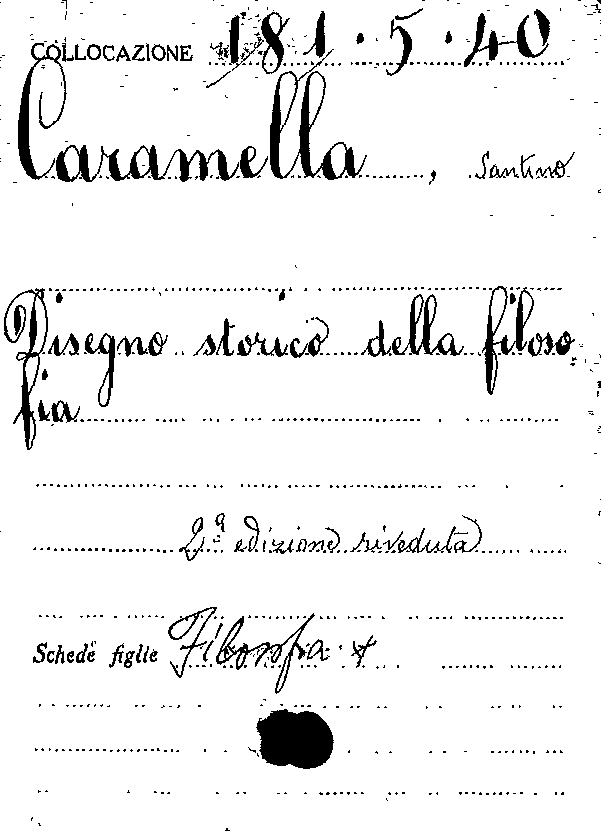 COLLOCAZIONE 181.5.40
Caramella, Santino
Disegno storico della filoso
fia
2ª edizione riveduta
Schede figlie Filosofia. +